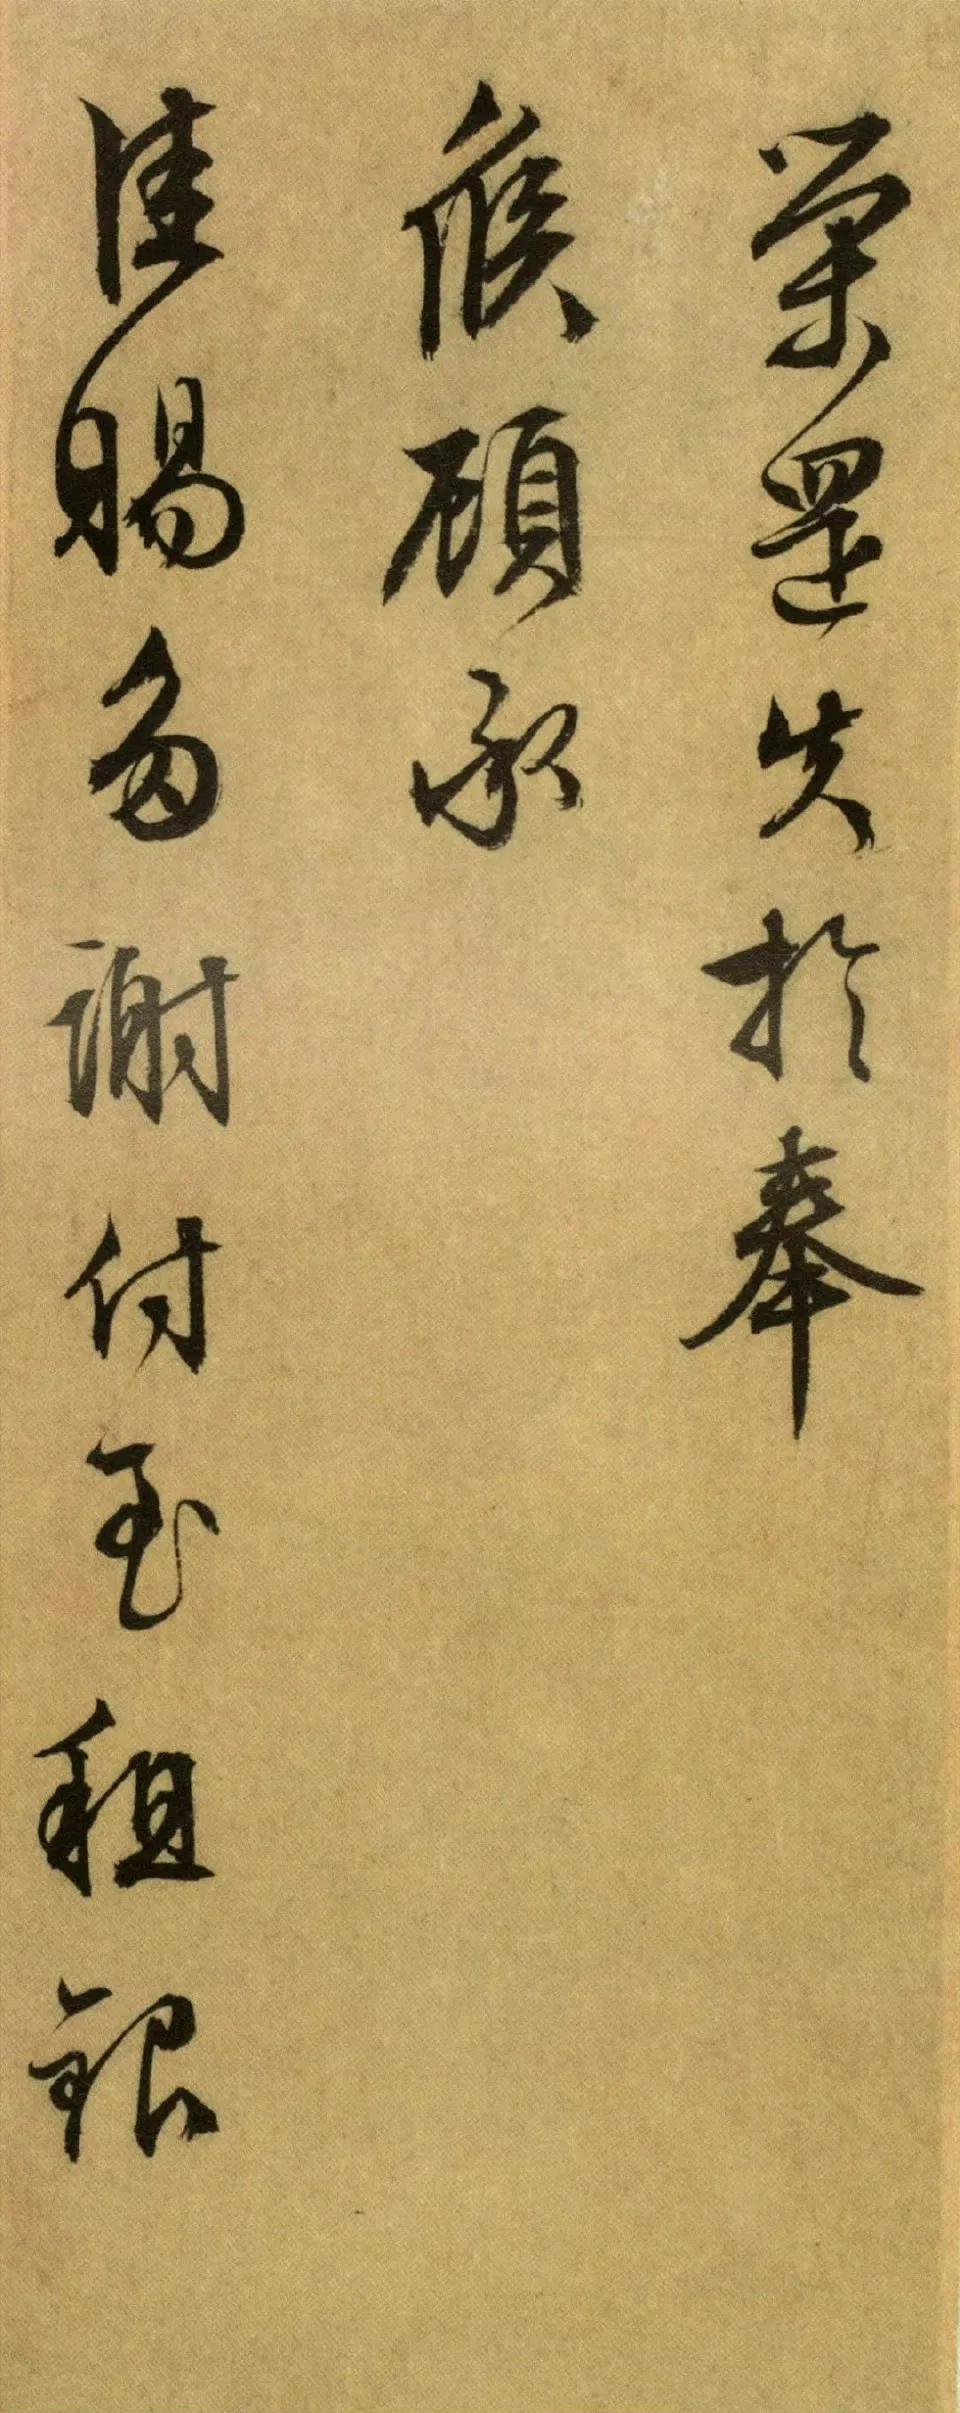 榮還失於奉
候顧承
佳賜多謝付至租銀